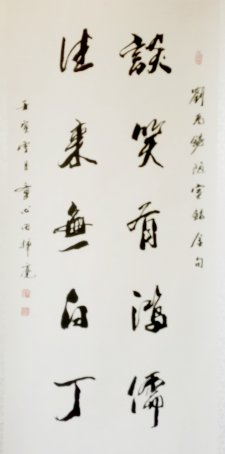 劉禹錫陋室銘金句
談笑有鴻儒
往來無白丁
壬寅